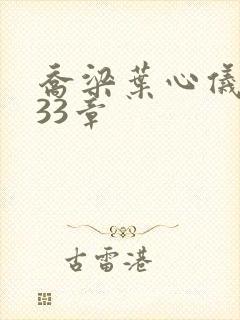 乔梁葉心儀
33章
古雷港